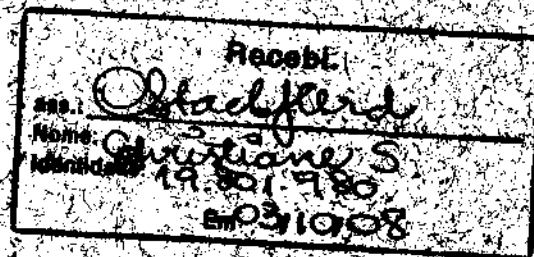 Recebi:
ass.:
Nome: Christiane S
Identidade 19.801.980
Em 03/10/08